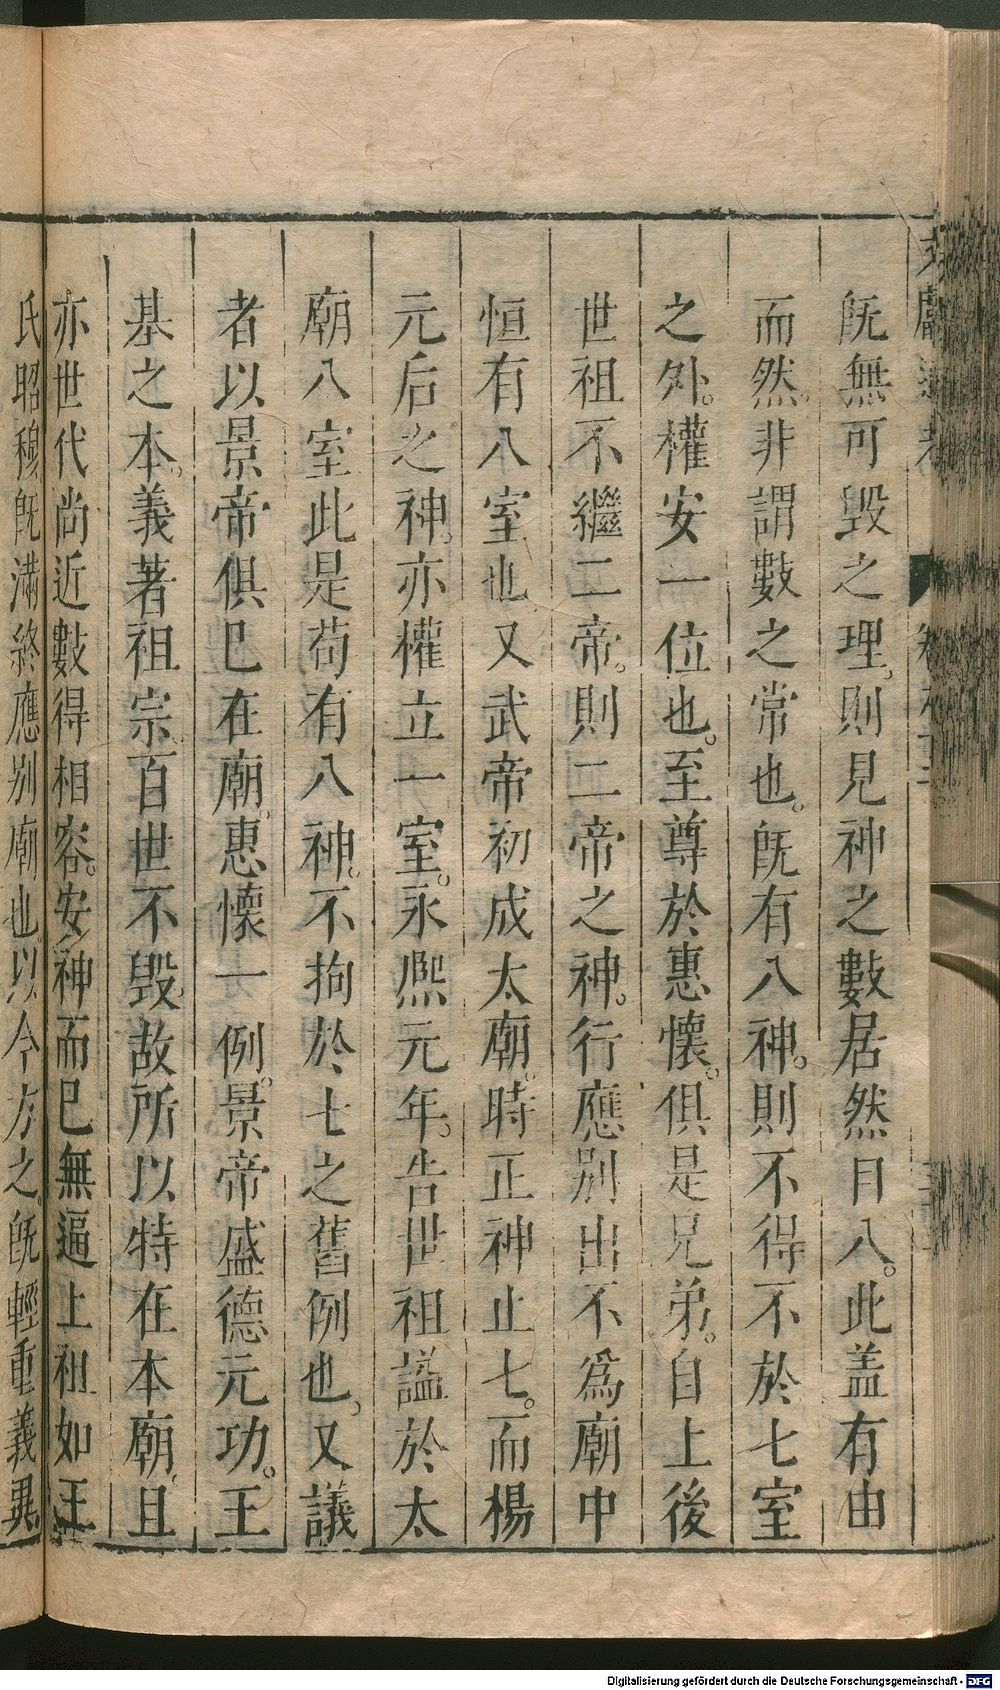 旣無可毀之理。則見神之數居然自八。此盖有由
而然。非謂數之常也。旣有八神。則不得不於七室
之外。權安一位也。至尊於惠懷。俱是兄弟。自上後
世祖不繼二帝。則二帝之神。行應别出不爲廟中
恒有八室也。又武帝初成太廟。時正神止七。而楊
元后之神。亦權立一室。永熙元年。告世祖謚於太
廟八室此是苟有八神。不拘於七之舊例也。又議
者以景帝俱已在廟。惠懷一例。景帝盛德元功。王
基之本。義著祖宗。百世不毀。故所以特在本廟。且
亦世代尚近數得相容。安神而已無逼上祖如王
氏昭穆旣滿終應别廟也。以今方之。旣輕重義異
Digitalisierung gefördert durch die Deutsche Forschungsgemeinschaft - DFG